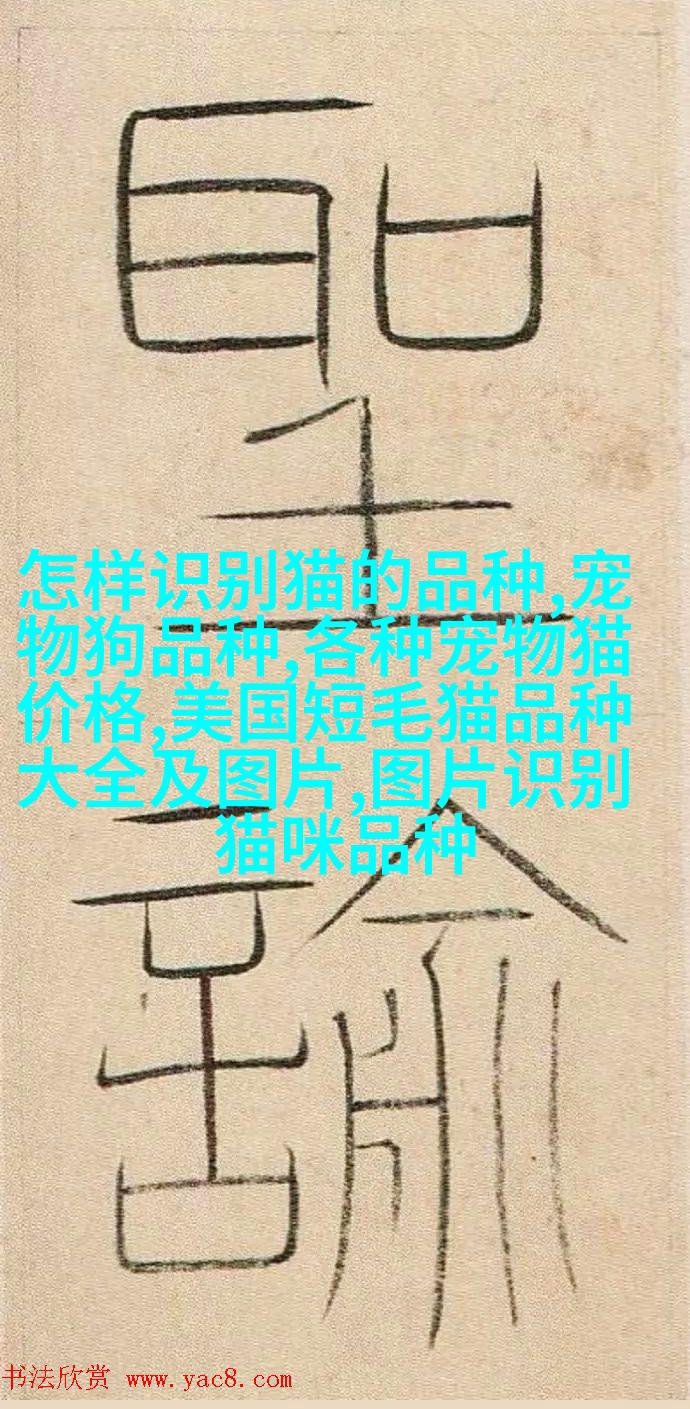 聖
諭
怎样识别猫的品种,宠
物狗品种,各种宠物猫
价格,美国短毛猫品种
大全及图片,图片识别
猫咪品种
书法欣赏 www.yac8.com